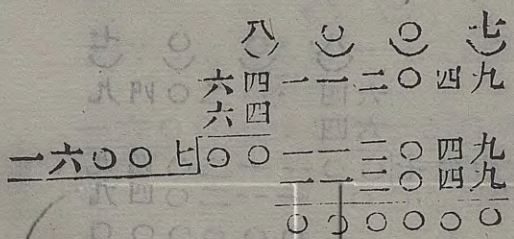 八)〇)〇)七)
六四一一二〇四九
六四
一六〇〇七 〇〇一一二〇四九
一一二〇四九
〇〇〇〇〇〇